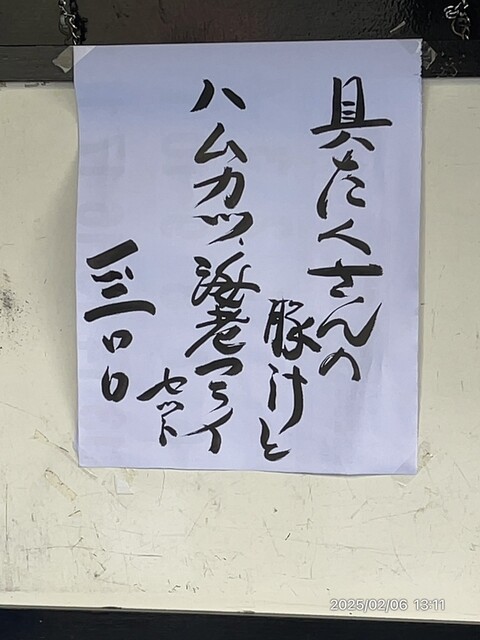 具たくさんの
豚汁と
ハムカツ、海老フライ
セット
一、三〇〇
2025/02/06 13:11